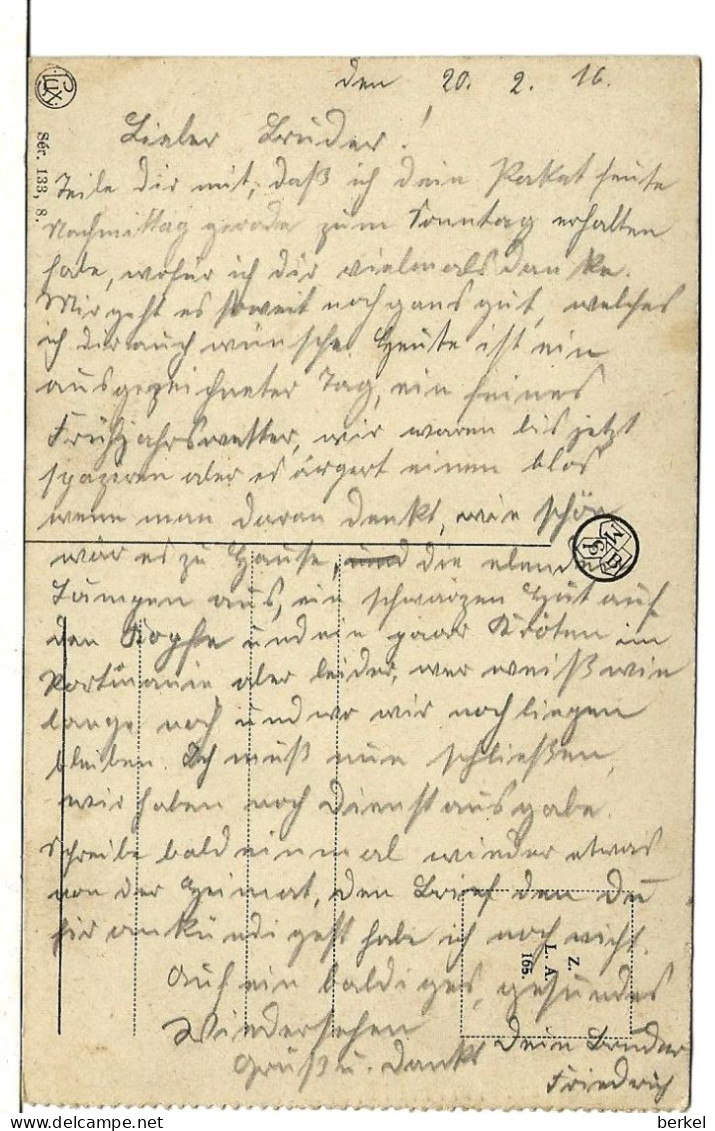 den 20. 2. 16.
Lieber Bruder!
Teile dir mit, daß ich dein Paket heute
Nachmittag gerade zum Sonntag erhalten
habe, wofür ich dir vielmals danke.
Mir geht es soweit noch gans gut, welches
ich dir auch wünsche. Heute ist ein
ausgezeichneter Tag, ein feines
Frühjahrswetter, wir waren bis jetzt
spazieren aber es ärgert einem blos
wenn man daran denkt, wie schön
wär es zu Hause, und die elenden
Lumpen aus, ein schwarzen Hut auf
den Kopfe und ein paar Kröten im
Portmanie, aber leider, wer weiß wie
lange noch und wo wir noch liegen
bleiben. Ich muß nun schließen,
wir haben noch Dienstausgabe.
Schreibe bald einmal wieder etwas
von der Heimat, den Brief den du
hir ankündigest habe ich noch nicht.
Auf ein baldiges, gesundes
Wiedersehen
Gruß u. Dankt Dein Bruder
Friedrich
Lux
Sér. 133, 8.
Z.
L. A.
165.
berkel